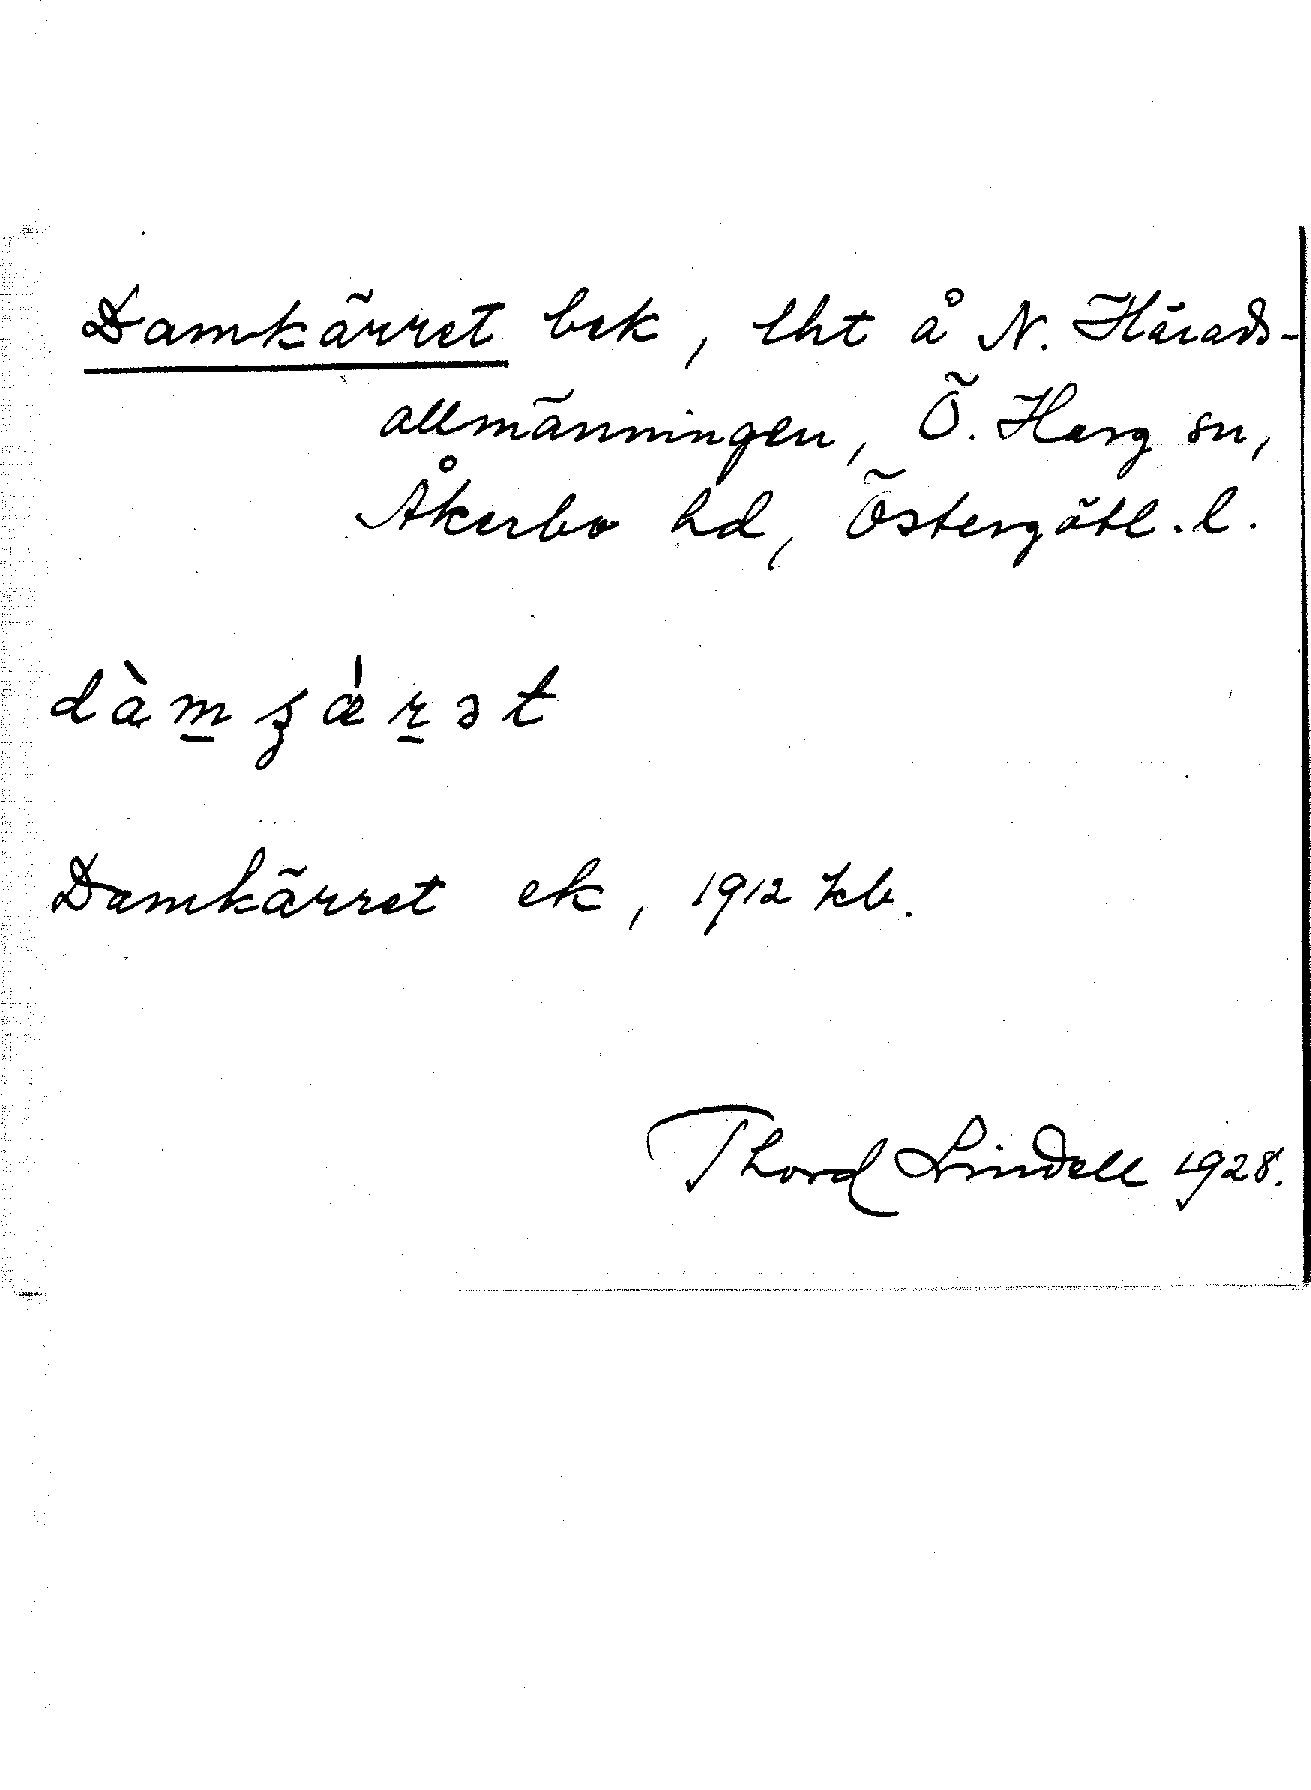 Damkärret bek, lht å N. Härads-
allmänningen, Ö. Harg sn,
Åkerbo hd, Östergötl. l.
dàm̲ʂǽr̲ət
Damkärret ek, 1912 kb.
Thord Lindell 1928.